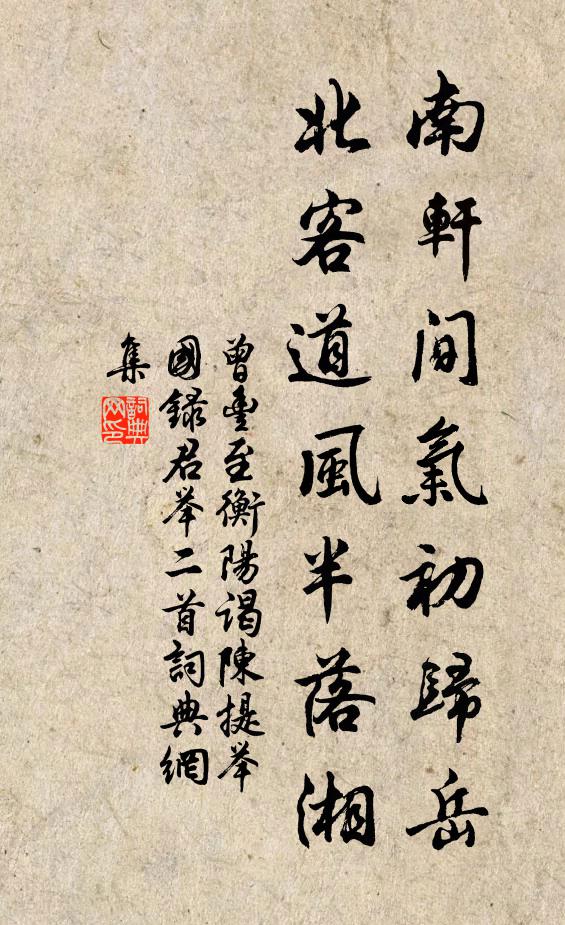 南軒間氣初歸岳
北客道風半落湘
曾豐至衡陽谒陳提举
國録君举二首詞典網
集
詞典網印